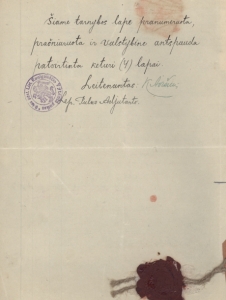 Šiame tarnybos lape pranumeruota,
prašniuruota ir valstybine antspauda
patvirtinta keturi (4) lapai
Leitenantas
Adjutants.